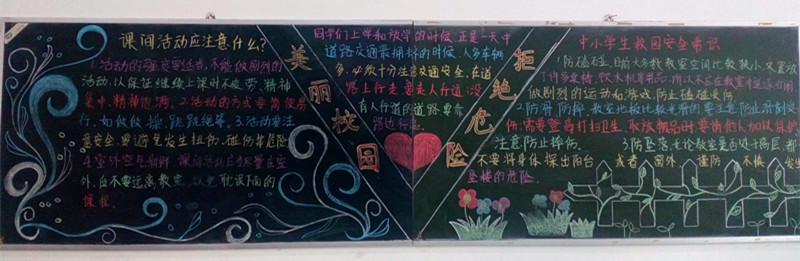 课间活动应注意什么?
1.活动的强度要适当,不能做剧烈的
活动,以保证继续上课时不疲劳,精神
集中,精神饱满。2.活动的方式要简便易
行,如做做操,跳跳绳等。3.活动要注
意安全,要避免发生扭伤,碰伤等危险
4.室外空气新鲜,课间活动应尽量在室
外,但不要远离教室,以免耽误下面的
课程。
美丽校园
同学们上学和放学的时候,正是一天中
道路交通最拥挤的时候,人多车辆
多,必须十分注意交通安全,在道
路上行走要走人行道;没
有人行道的道路要靠
路边行走
拒绝危险
中小学生校园安全常识
1.防磕碰,目前大多数教室空间比较狭小,又置放
了许多桌椅,饮水机等用品,所以不应在教室中追逐打闹
做剧烈的运动和游戏,防止磕碰受伤
2.防滑,防摔,教室地板比较光滑的要注意防止滑倒受
伤;需要登高打扫卫生,取放物品时要请他人加以保护
注意防止摔伤. 3.防坠落,无论教室是否处于高层,都
不要将身体探出阳台 或者 窗外 谨防 不慎 发生
坠楼的危险.